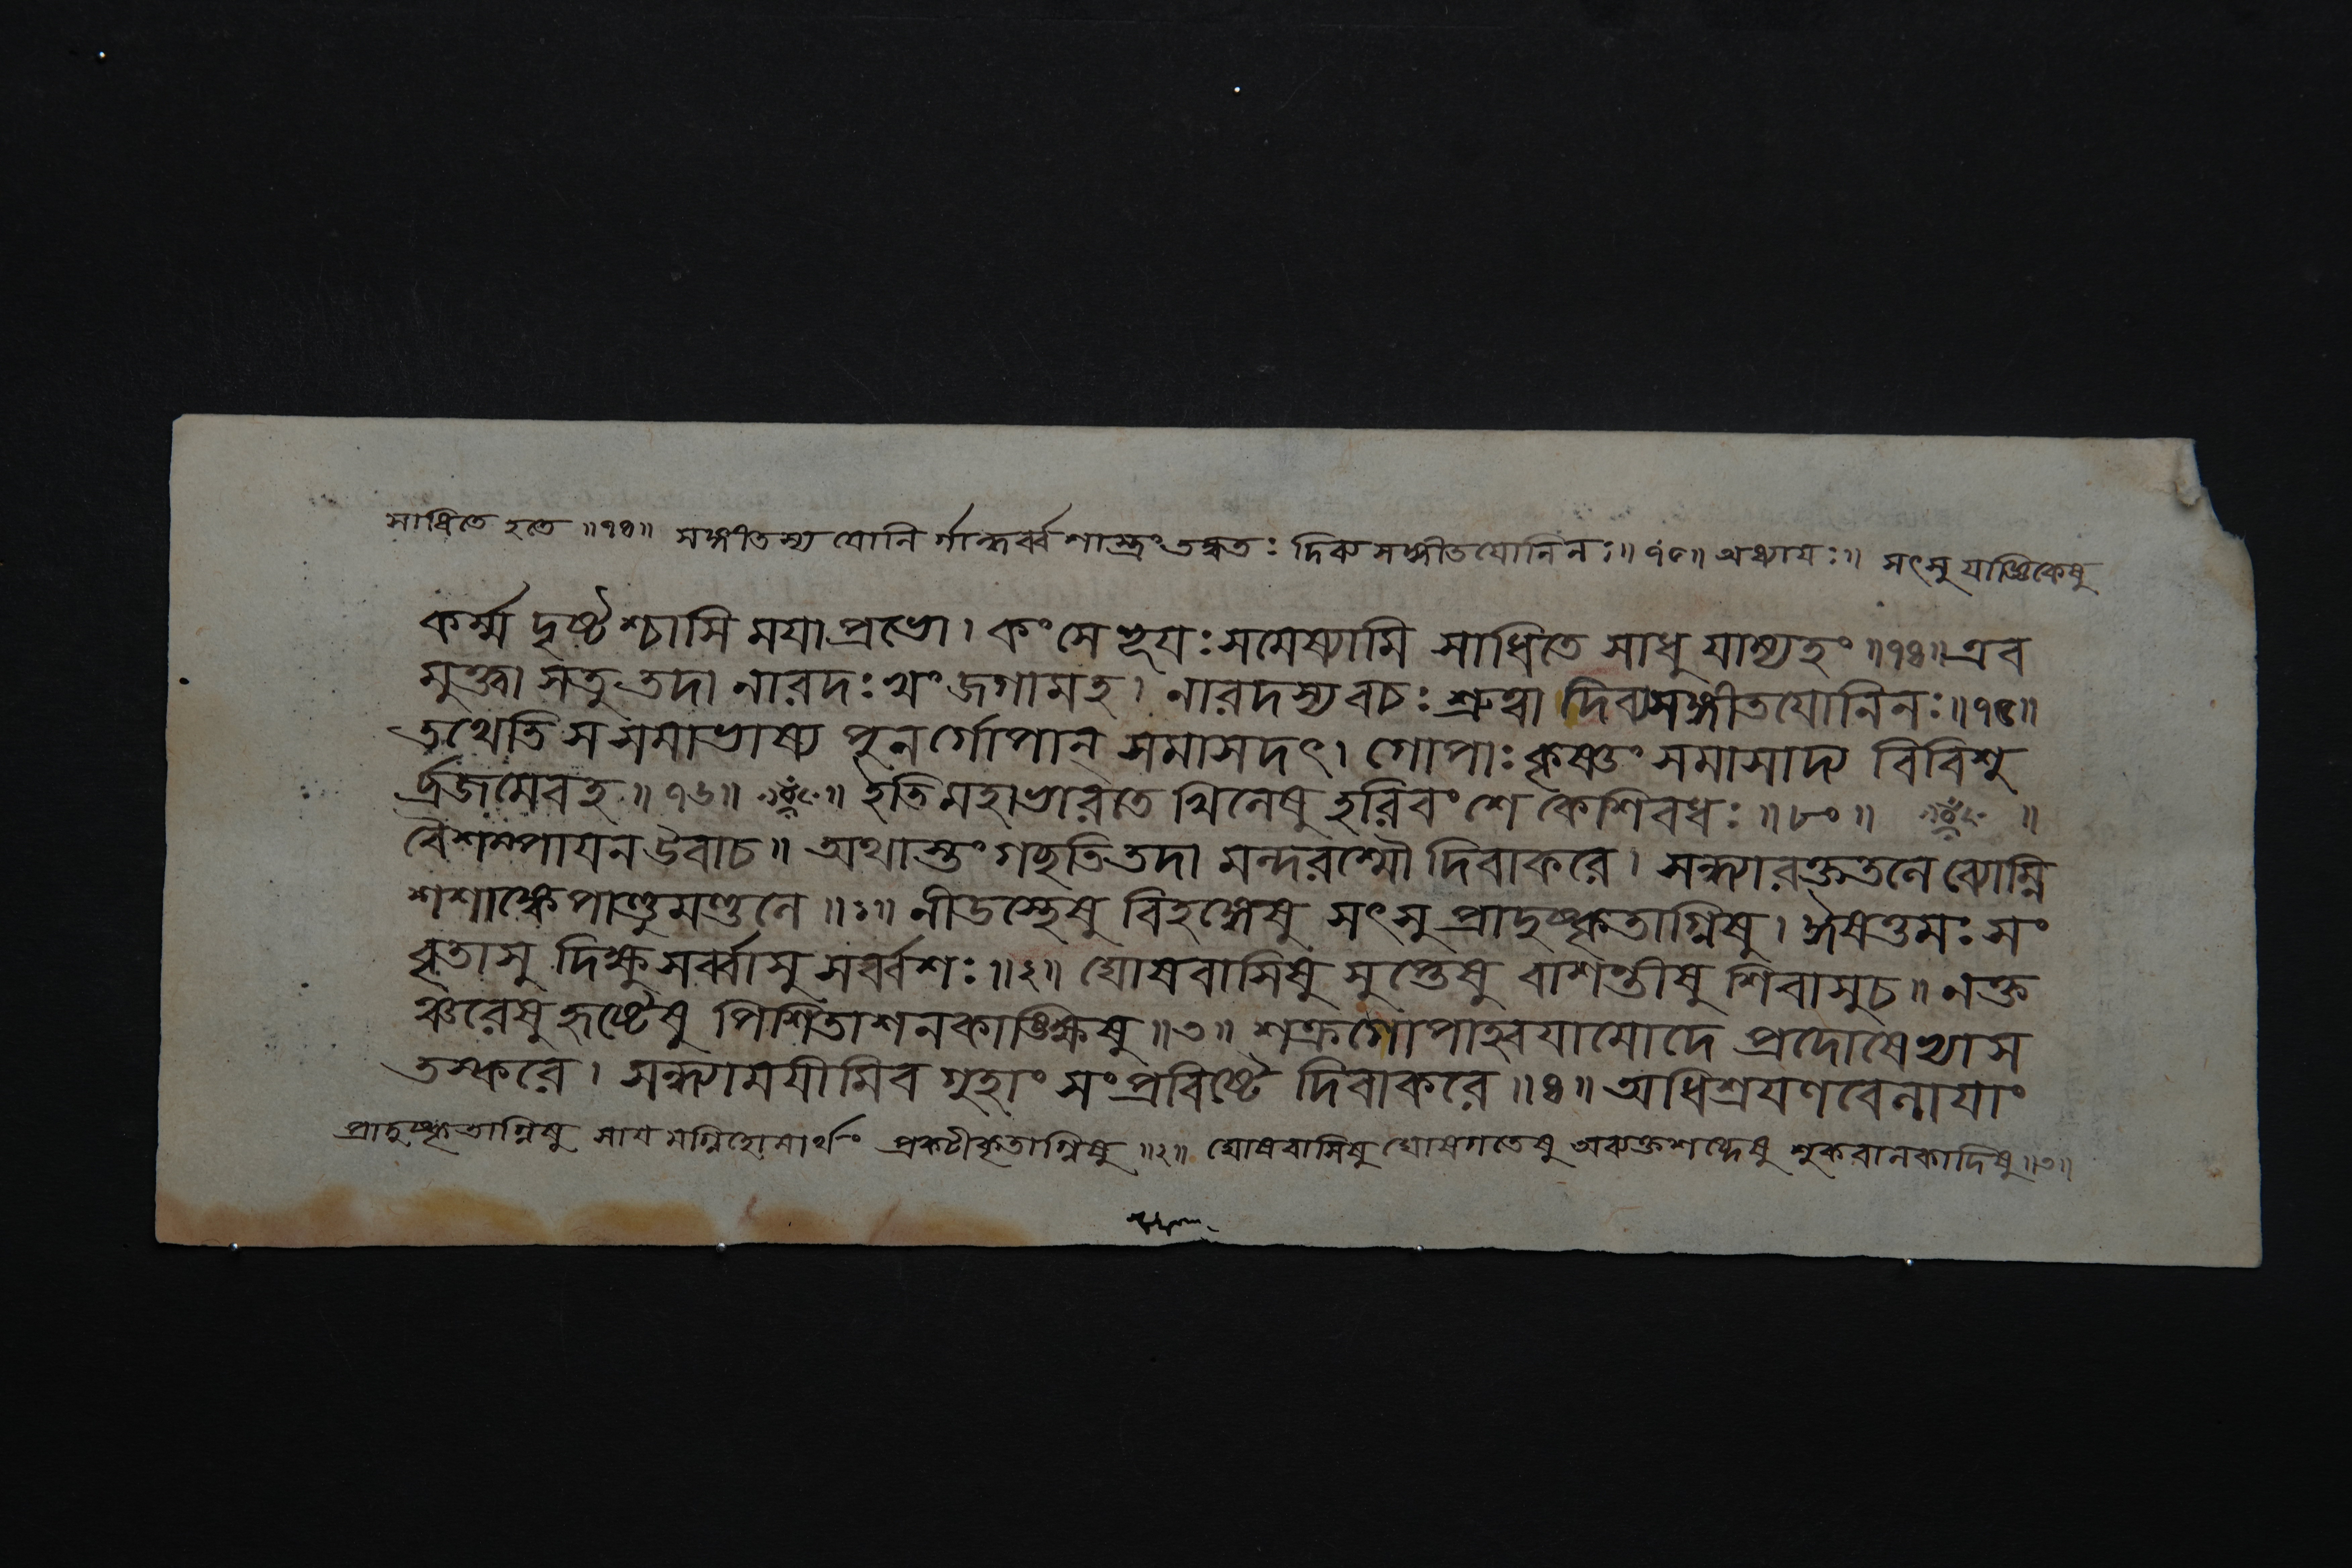 সাধিতে হতে ॥৭৪॥ সঙ্গীতস্য যোনি র্গান্ধর্ব্ব শাস্ত্রং তদ্বতঃ দিব্য সঙ্গীতযোনিনঃ॥ ৭৫॥ অধ্যায়ঃ॥ সৎসু যাজ্ঞিকেষু
কর্ম্ম দৃষ্টশ্চাসি ময়া প্রভো। কংসে ভূয়ঃ সমেষ্যামি সাধিতে সাধু যাম্যহং ॥৭৪॥ এব
মুক্ত্বা সতু তদা নারদঃ খং জগামহ। নারদস্য বচঃ শ্রুত্বা দিব্যসঙ্গীতযোনিনঃ॥৭৫॥
তথেতি স সমাভাষ্য পুনর্গোপান্ সমাসদৎ। গোপাঃ কৃষ্ণং সমাসাদ্য বিবিশু
র্ব্রজমেবহ॥ ৭৬॥ ॥ ইতি মহাভারতে খিলেষু হরিবংশে কেশিবধঃ ॥৮০॥ ॥
বৈশম্পায়ন উবাচ॥ অথাস্তং গছতি তদা মন্দরশ্মৌ দিবাকরে। সন্ধ্যারক্ততলে ব্যোম্নি
শশাঙ্কে পাণ্ডুমণ্ডলে ॥১॥ নীডস্থেষু বিহঙ্গেষু সৎসু প্রাদুষ্কৃতাগ্নিষু। ঈষত্তমঃ সং
বৃতাসু দিক্ষু সর্ব্বাসু সর্ব্বশঃ ॥২॥ ঘোষবাসিষু সুপ্তেষু বাশন্তীষু শিবাসুচ॥ নক্ত
ঞ্চরেষু হৃষ্টেষু পিশিতাশনকাঙ্ক্ষিষু ॥৩॥ শক্রগোপাহ্বয়ামোদে প্রদোষেভ্যাস
তস্করে। সন্ধ্যাময়ীমিব গুহাং সংপ্রবিষ্টে দিবাকরে ॥৪॥ অধিশ্রয়ণবেলায়াং
প্রাদুষ্কৃতাগ্নিষু সায়মগ্নিহোমার্থং প্রকটীকৃতাগ্নিষু ॥২॥ ঘোষবাসিষু ঘোষগতেষু অব্যক্তশব্দেষু শুকবালকাদিষু ॥৩॥